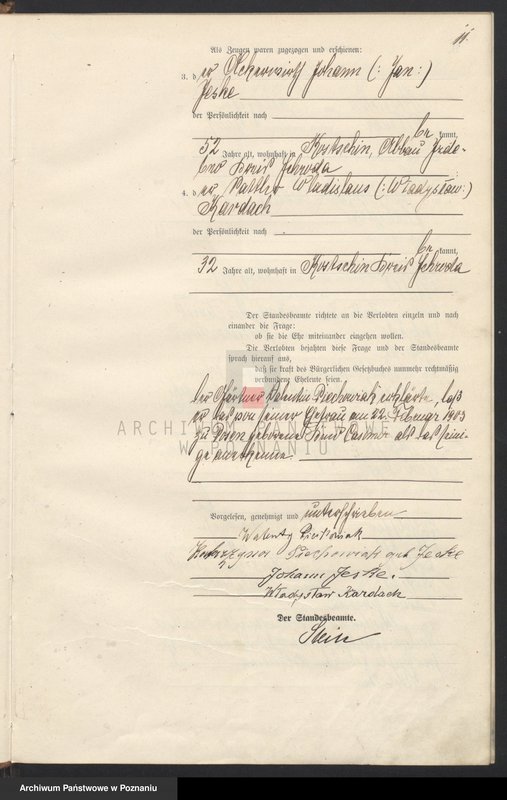 11.
Als Zeugen waren zugezogen und erschienen:
3. der Ackerwirth Johann (: Jan :)
Jeske
der Persönlichkeit nach
be kannt,
52 Jahre alt, wohnhaft in Kostschin, Abbau
Kreis Schroda
4. der Wladislaus (: Władysław :)
Kardach
der Persönlichkeit nach
be kannt,
32 Jahre alt, wohnhaft in Kostschin Kreis Schroda
Der Standesbeamte richtete an die Verlobten einzeln und nach
einander die Frage:
ob sie die Ehe miteinander eingehen wollen.
Die Verlobten bejahten diese Frage und der Standesbeamte
sprach hierauf aus,
daß sie kraft des Bürgerlichen Gesetzbuches nunmehr rechtmäßig
verbundene Eheleute seien.
Der Gärtner Valentin Piechowiak erklärte, daß
er das von seiner Gefrau am 22. Februar 1903
zu Posen geborene Kind Casimir als das seini-
ge anerkenne.
ARCHIWUM PAŃSTWOWE
W POZNANIU
Vorgelesen, genehmigt und unterschrieben
Walenty Piechowiak
Piechowiak geb Jeske
Johann Jeske.
Władysław Kardach
Der Standesbeamte.
Stein
Archiwum Państwowe w Poznaniu